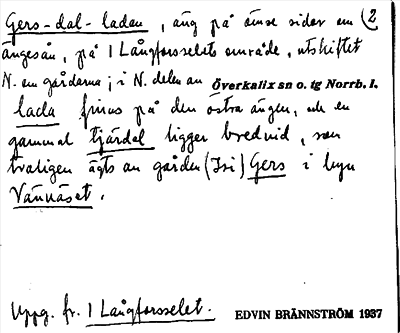 Gers-dal-ladan, äng på ömse sidor om (2
ängesån, på 1 Långforsselets område, utskiftet
N. om gårdarna; i N. delen av Överkalix sn o. tg Norrb. l.
lada finns på den östra ängen, och en
gammal tjärdal ligger bredvid, som
troligen ägts av gården (Isi) Gers i byn
Vännäset.
Uppg. fr. 1 Långforsselet. EDVIN BRÄNNSTRÖM 1937